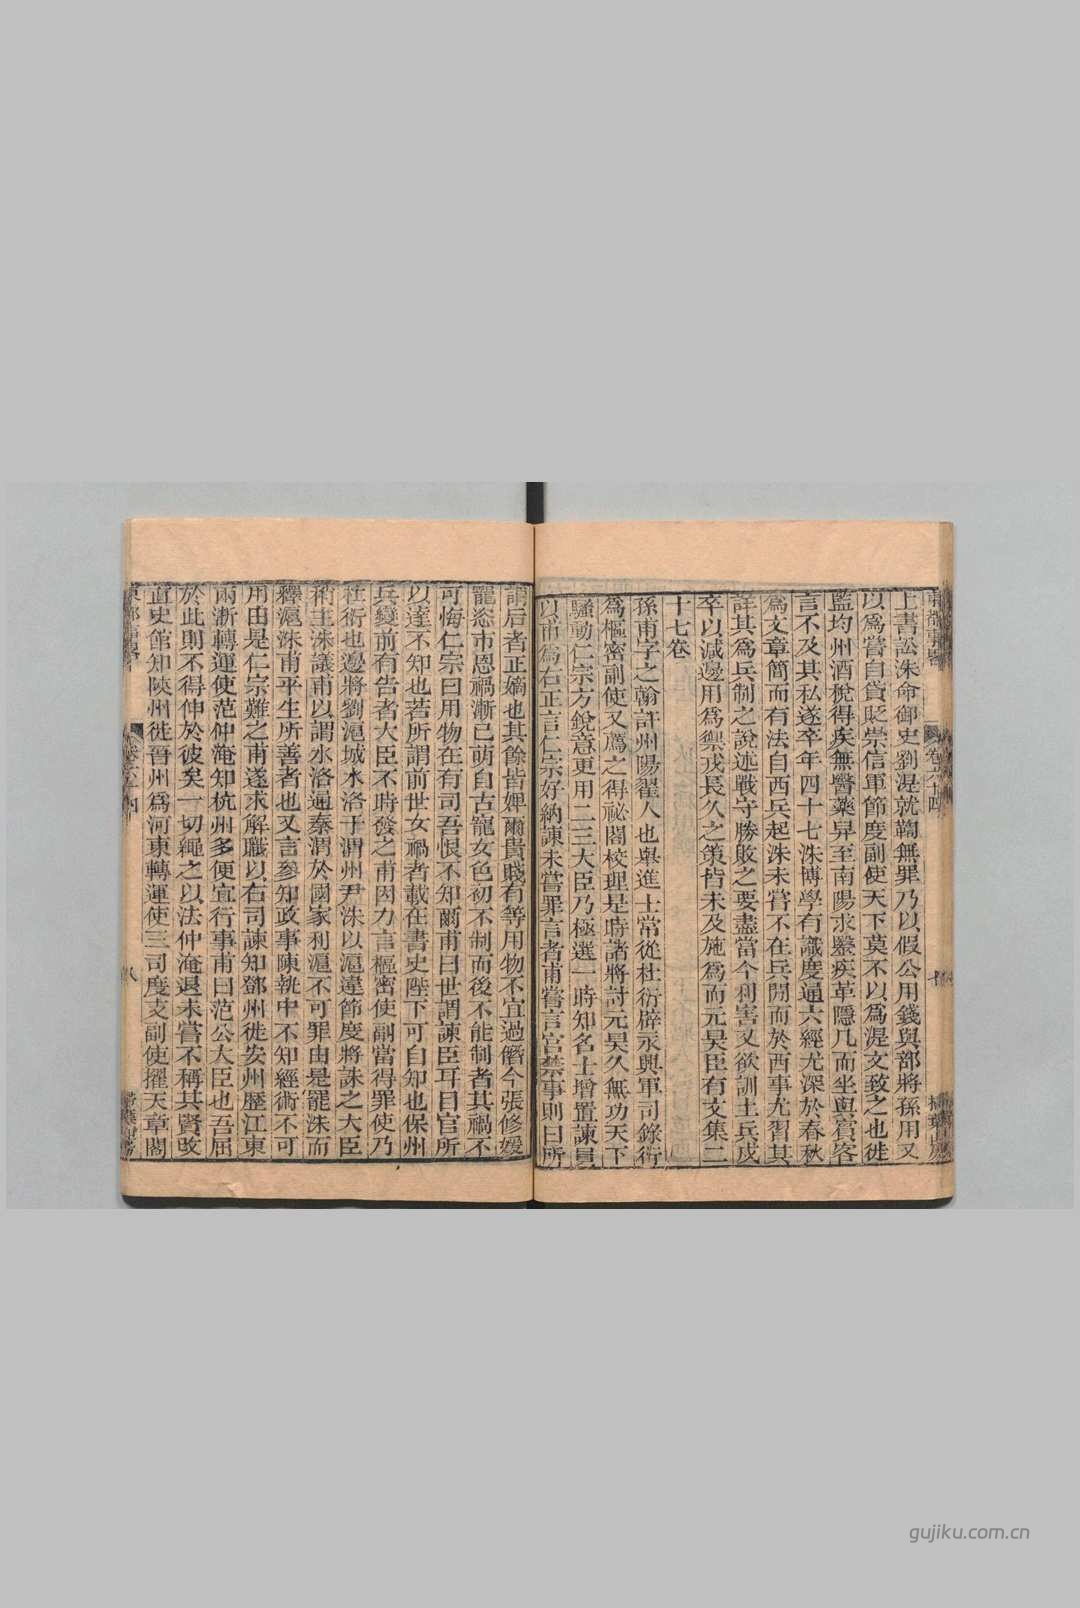 上書訟洙命御史劉湜就鞫無罪乃以假公用錢與部將孫用又
以爲嘗自貸貶崇信軍節度副使天下莫不以爲湜文致之也徙
監均州酒稅得疾無醫藥舁至南陽求醫疾革隱几而坐與賓客
言不及其私遂卒年四十七洙博學有識度通六經尤深於春秋
爲文章簡而有法自西兵起洙未嘗不在兵閒而於西事尤習其
詳其爲兵制之說述戰守勝敗之要盡當今利害又欲訓土兵戍
卒以減邊用爲禦戎長久之策皆未及施爲而元昊臣有文集二
十七卷
孫甫字之翰許州陽翟人也舉進士常從杜衍辟永興軍司錄衍
爲樞密副使又薦之得祕閣校理是時諸將討元昊久無功天下
騷動仁宗方銳意更用二三大臣乃極選一時知名士增置諫員
以甫爲右正言仁宗好納諫未嘗罪言者甫嘗言宮禁事則曰所
謂后者正嫡也其餘皆婢爾貴賤有等用物不宜過僭今張修媛
寵恣市恩禍漸已萌自古寵女色初不制而後不能制者其禍不
可悔仁宗曰用物在有司吾恨不知爾甫曰世謂諫臣耳目官所
以達不知也若所謂前世女禍者載在書史陛下可自知也保州
兵變前有告者大臣不時發之甫因力言樞密使副當得罪使乃
杜衍也邊將劉滬城水洛于渭州尹洙以滬違節度將誅之大臣
稍主洙議甫以謂水洛通秦渭於國家利滬不可罪由是罷洙而
釋滬洙甫平生所善者也又言參知政事陳執中不知經術不可
用由是仁宗難之甫遂求解職以右司諫知鄧州徙安州歷江東
兩浙轉運使范仲淹知杭州多便宜行事甫曰范公大臣也吾屈
於此則不得伸於彼矣一切繩之以法仲淹退未嘗不稱其賢改
直史館知陝州徙晉州爲河東轉運使三司度支副使擢天章閣
卷六十四
八
gujiku.com.cn